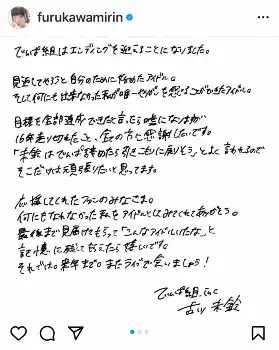 furukawamirin
でんぱ組はエンディングを迎えることになりました。
見返してやろうと自分のために始めたアイドル。
そして何にも出来なかった私が唯一やりがいを感じることができたアイドル。
目標を全部達成できたと言ったら嘘になるが
16年走り切れたこと、全の方に感謝したいです。
「未鈴はでんぱ辞めたら引きこもりに戻りそう」とよく言われるので
そこだけは頑張りたいと思ってます。
応援してくれたファンのみなさま。
何にもなれなかった私をアイドルとしてみてくれてありがとう。
最後まで見届けてもらって「こんなアイドルいたな」と
記憶に残してもらえたら嬉しいです。
それでは。来年まで。またライブで会いましょう!
でんぱ組.inc
古川 未鈴